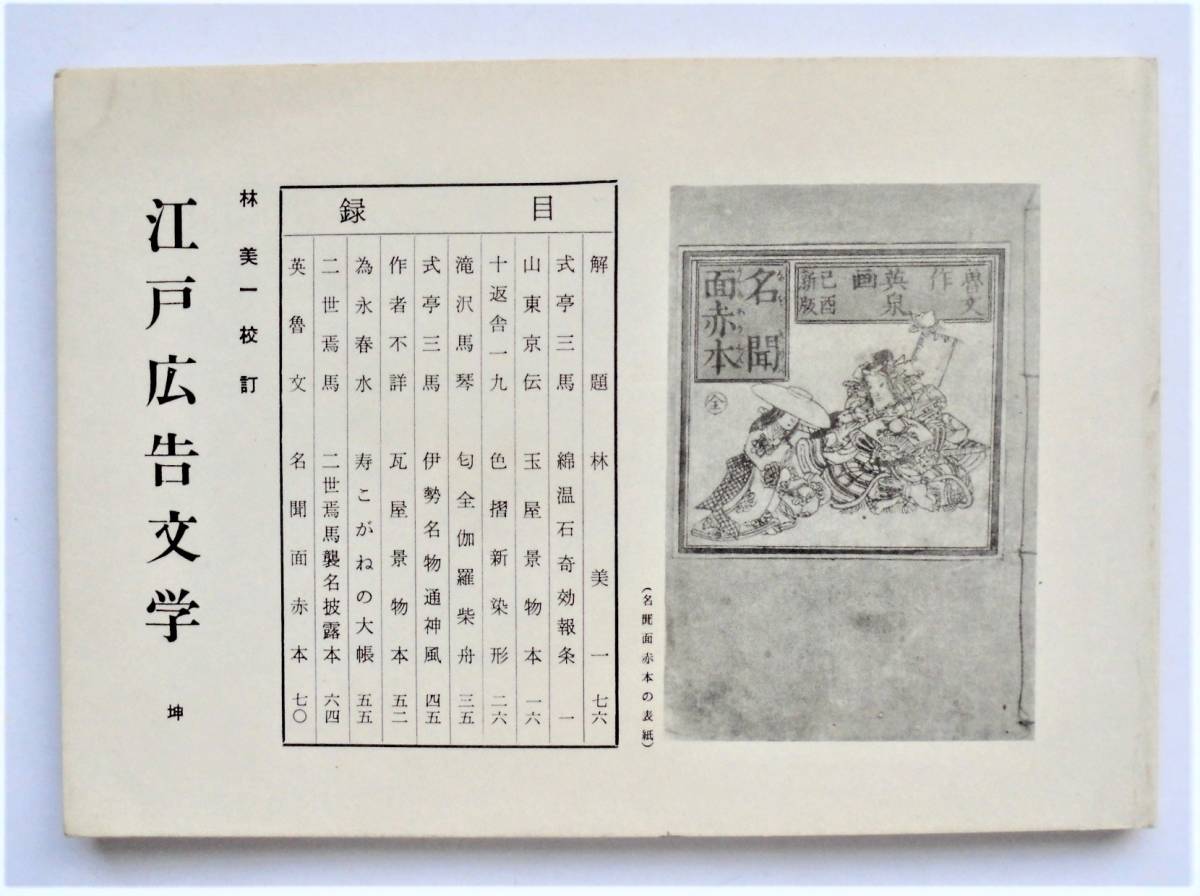 魯文
作
英泉
画
己酉
新版
名聞
面赤本
全
(名聞面赤本の表紙)
目録
解題 林美一 七六
式亭三馬 綿温石奇効報条 一
山東京伝 玉屋景物本 一六
十返舎一九 色摺新染形 二六
滝沢馬琴 匂全伽羅柴舟 三五
式亭三馬 伊勢名物通神風 四五
作者不詳 瓦屋景物本 五二
為永春水 寿こがねの大帳 五五
二世焉馬 二世焉馬襲名披露本 六四
英魯文 名聞面赤本 七〇
林美一校訂
江戸広告文学 坤